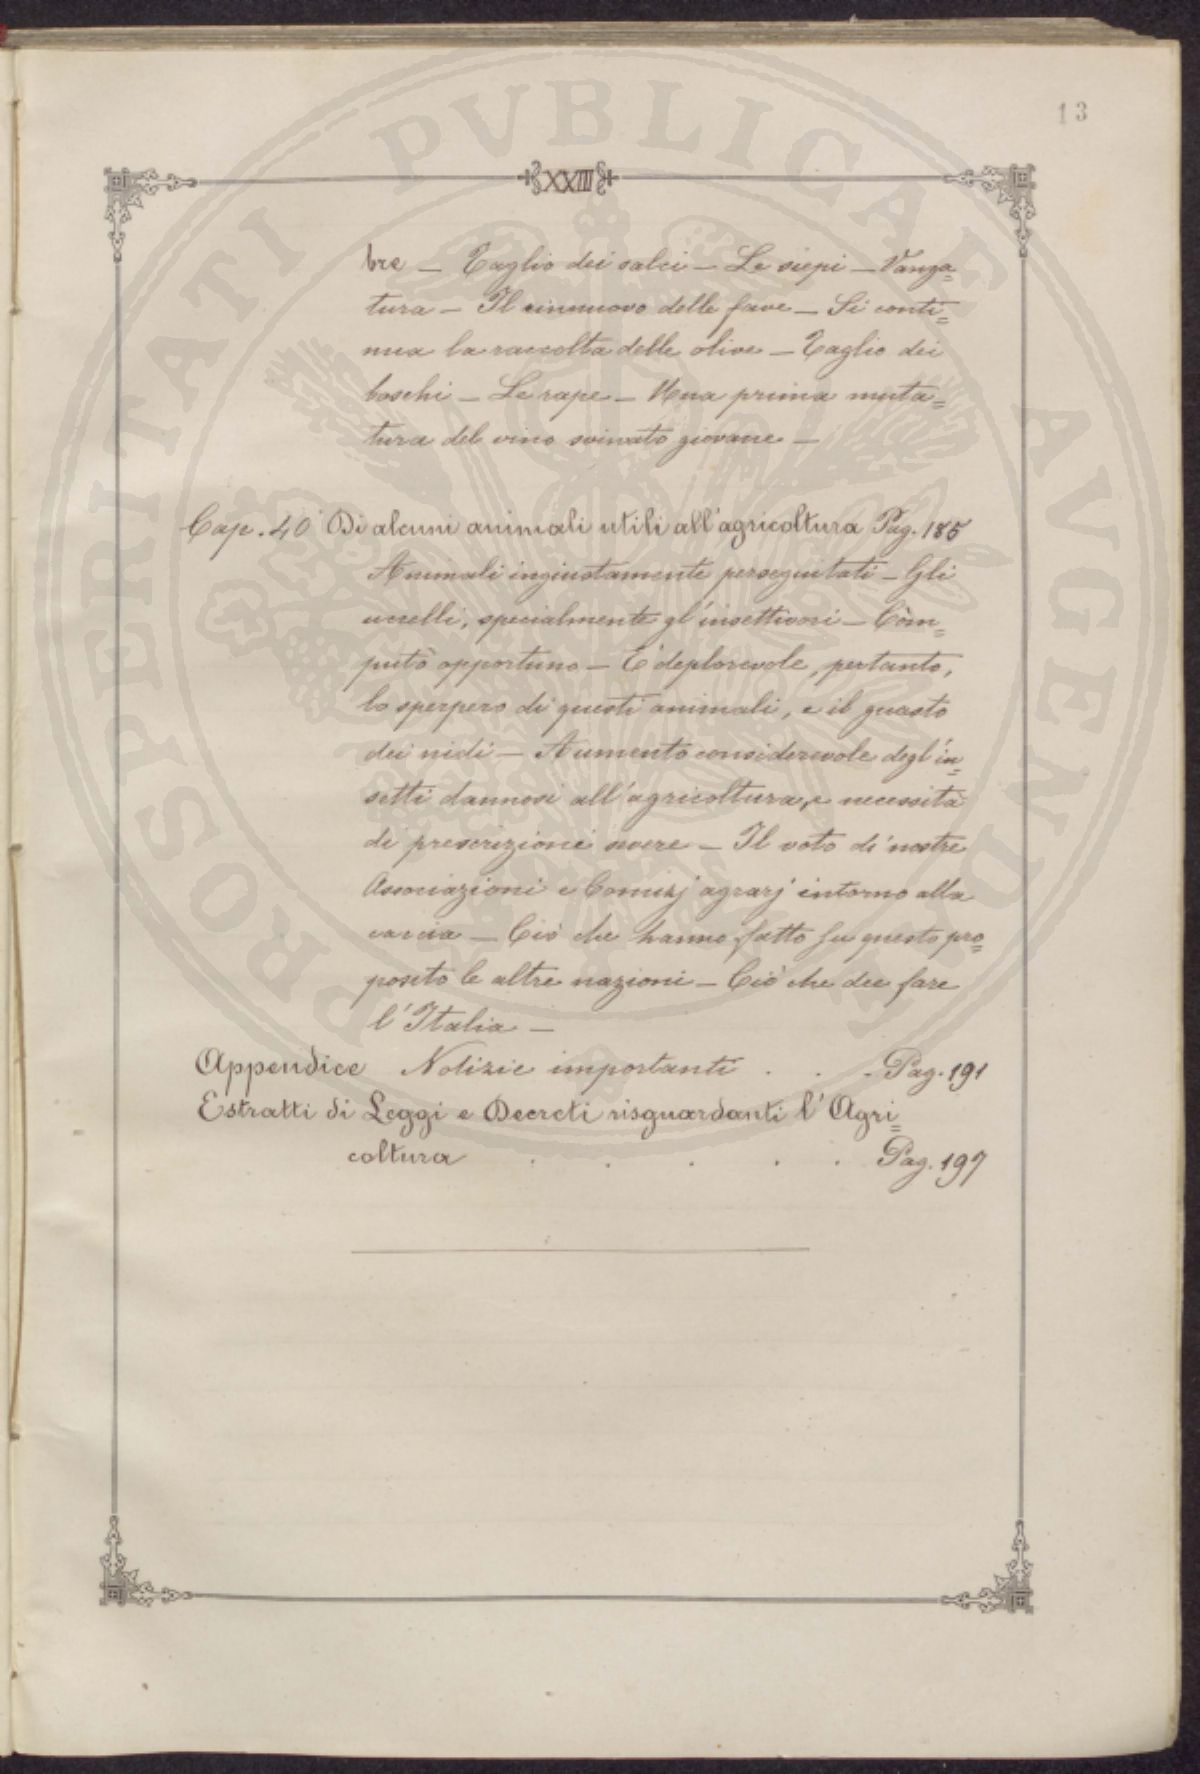 13
XXIII
bre — Taglio dei salci — Le siepi — Vanga=
tura — Il rinnuovo delle fave — Si conti=
nua la raccolta delle olive — Taglio dei
boschi — Le rape — Una prima muta=
tura del vino svinato giovane —
Cap. 40 Di alcuni animali utili all'agricoltura Pag. 185
Animali ingiustamente perseguitati — Gli
uccelli, specialmente gl'insettivori — Còm=
puto opportuno — È deplorevole, pertanto,
lo sperpero di questi animali, e il guasto
dei nidi — Aumento considerevole degl'in=
setti dannosi all'agricoltura, e necessità
di prescrizioni severe — Il voto di nostre
Associazioni e Comizj agrarj intorno alla
caccia — Ciò che hanno fatto su questo pro=
posito le altre nazioni — Ciò che dee fare
l'Italia —
Appendice Notizie importanti . . . Pag. 191
Estratti di Leggi e Decreti risguardanti l'Agri=
coltura . . . . . Pag. 197
PROSPERITATI PVBLICAE AVGENDAE